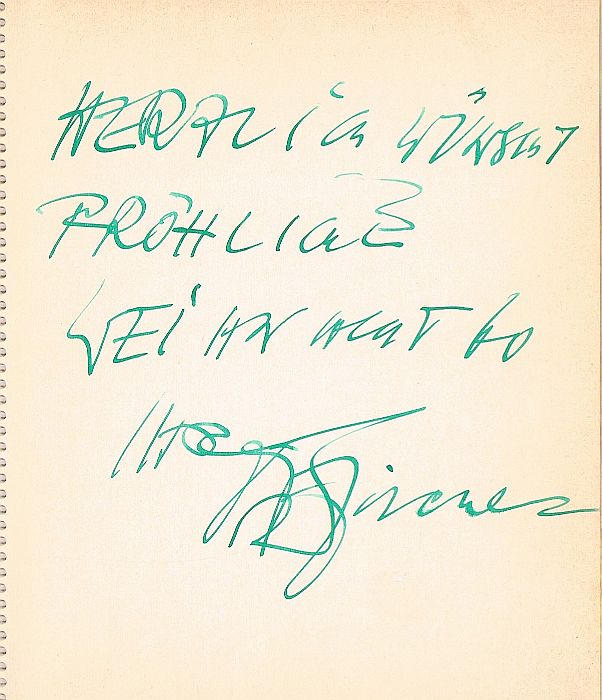 HERZLICH WÜNSCHT
FRÖHLICHE
WEIHNACHT 60